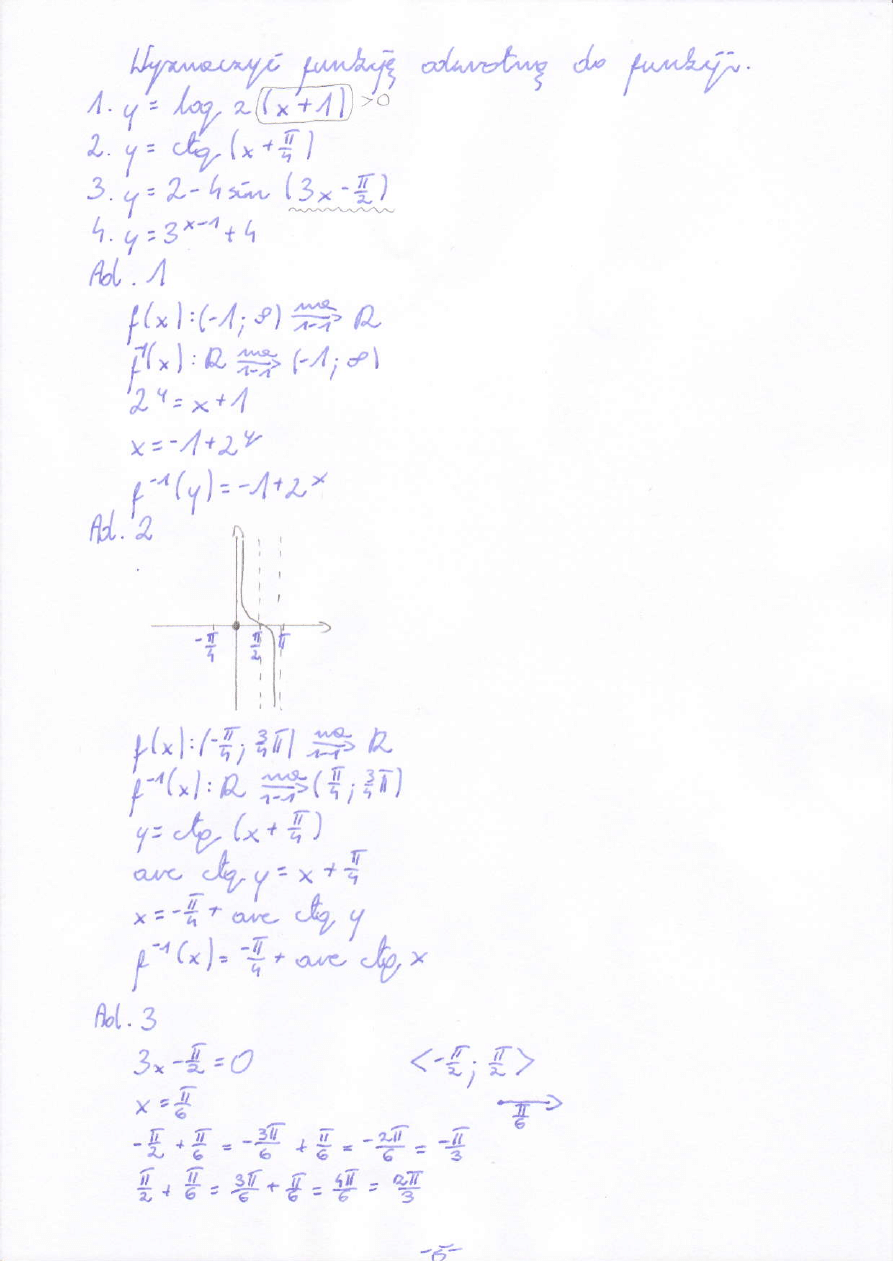 Wyznaczyć funkcję odwrotną do funkcji.
1. y = log 2 (x+1) >0
2. y = ctg (x + π/4)
3. y = 2 - 4 sin (3x - π/2)
4. y = 3^(x-1) + 4
Ad. 1
f(x) : (-1; ∞) na/1-1 → R
f^-1(x) : R na/1-1 → (-1; ∞)
2^y = x+1
x = -1 + 2^y
f^-1(y) = -1 + 2^x
Ad. 2
-π/4 π/2 π
f(x) : (-π/4; 3/4 π) na/1-1 → R
f^-1(x) : R na/1-1 → (π/4; 3/4 π)
y = ctg (x + π/4)
arc ctg y = x + π/4
x = -π/4 + arc ctg y
f^-1(x) = -π/4 + arc ctg x
Ad. 3
3x - π/2 = 0 <-π/2; π/2>
x = π/6 π/6
-π/2 + π/6 = -3π/6 + π/6 = -2π/6 = -π/3
π/2 + π/6 = 3π/6 + π/6 = 4π/6 = 2π/3